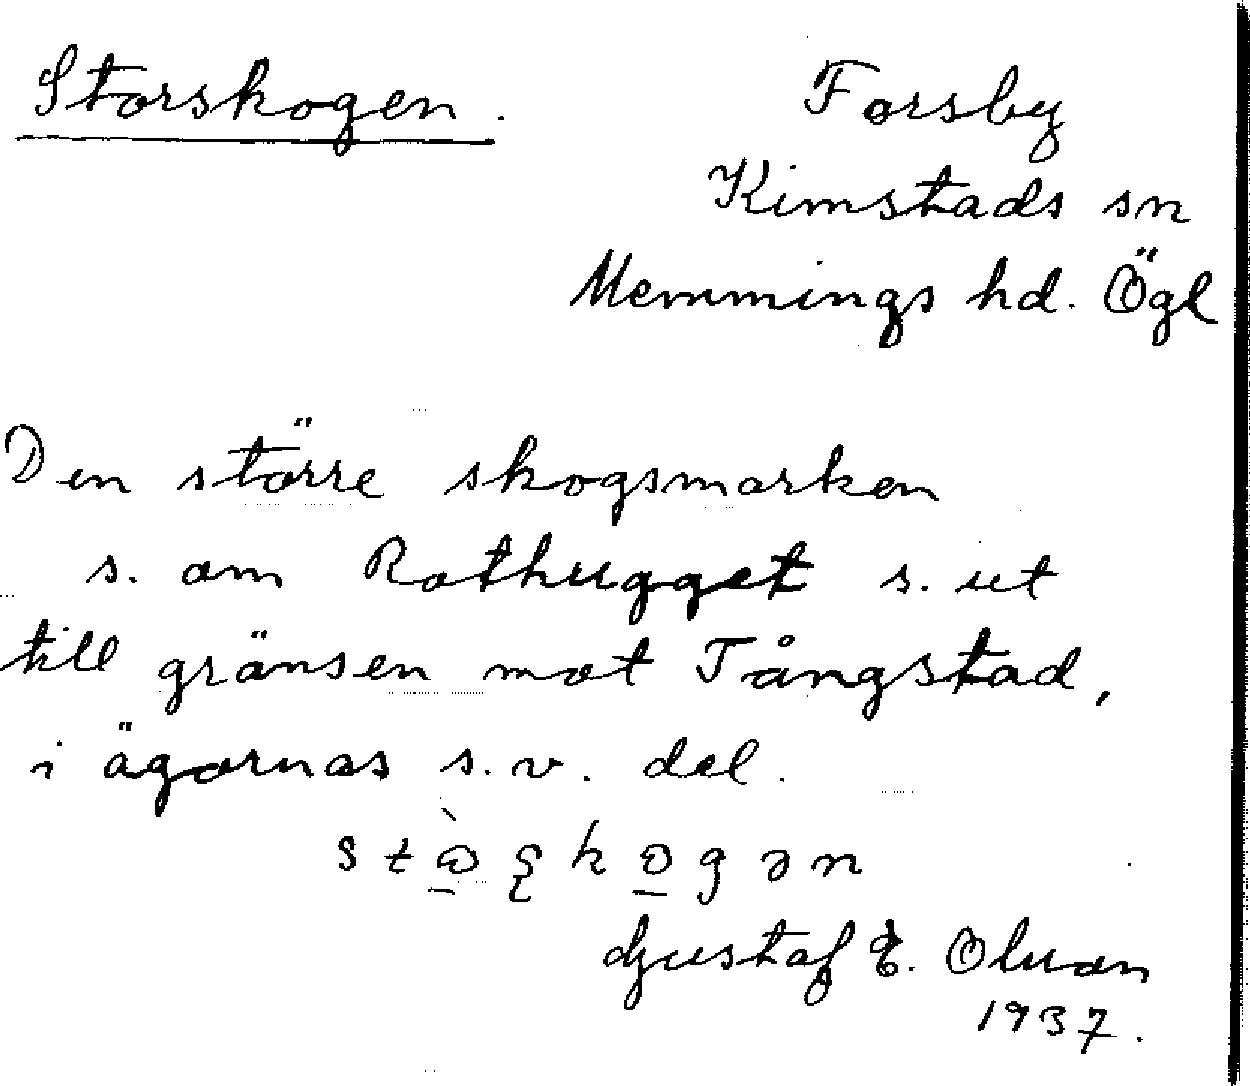 Storskogen.
Forsby
Kimstads sn
Memmings hd. Ögl
Den större skogsmarken
s. om Rothugget s. ut
till gränsen mot Tångstad,
i ägornas s.v. del.
Gustaf E. Olsson
1937.